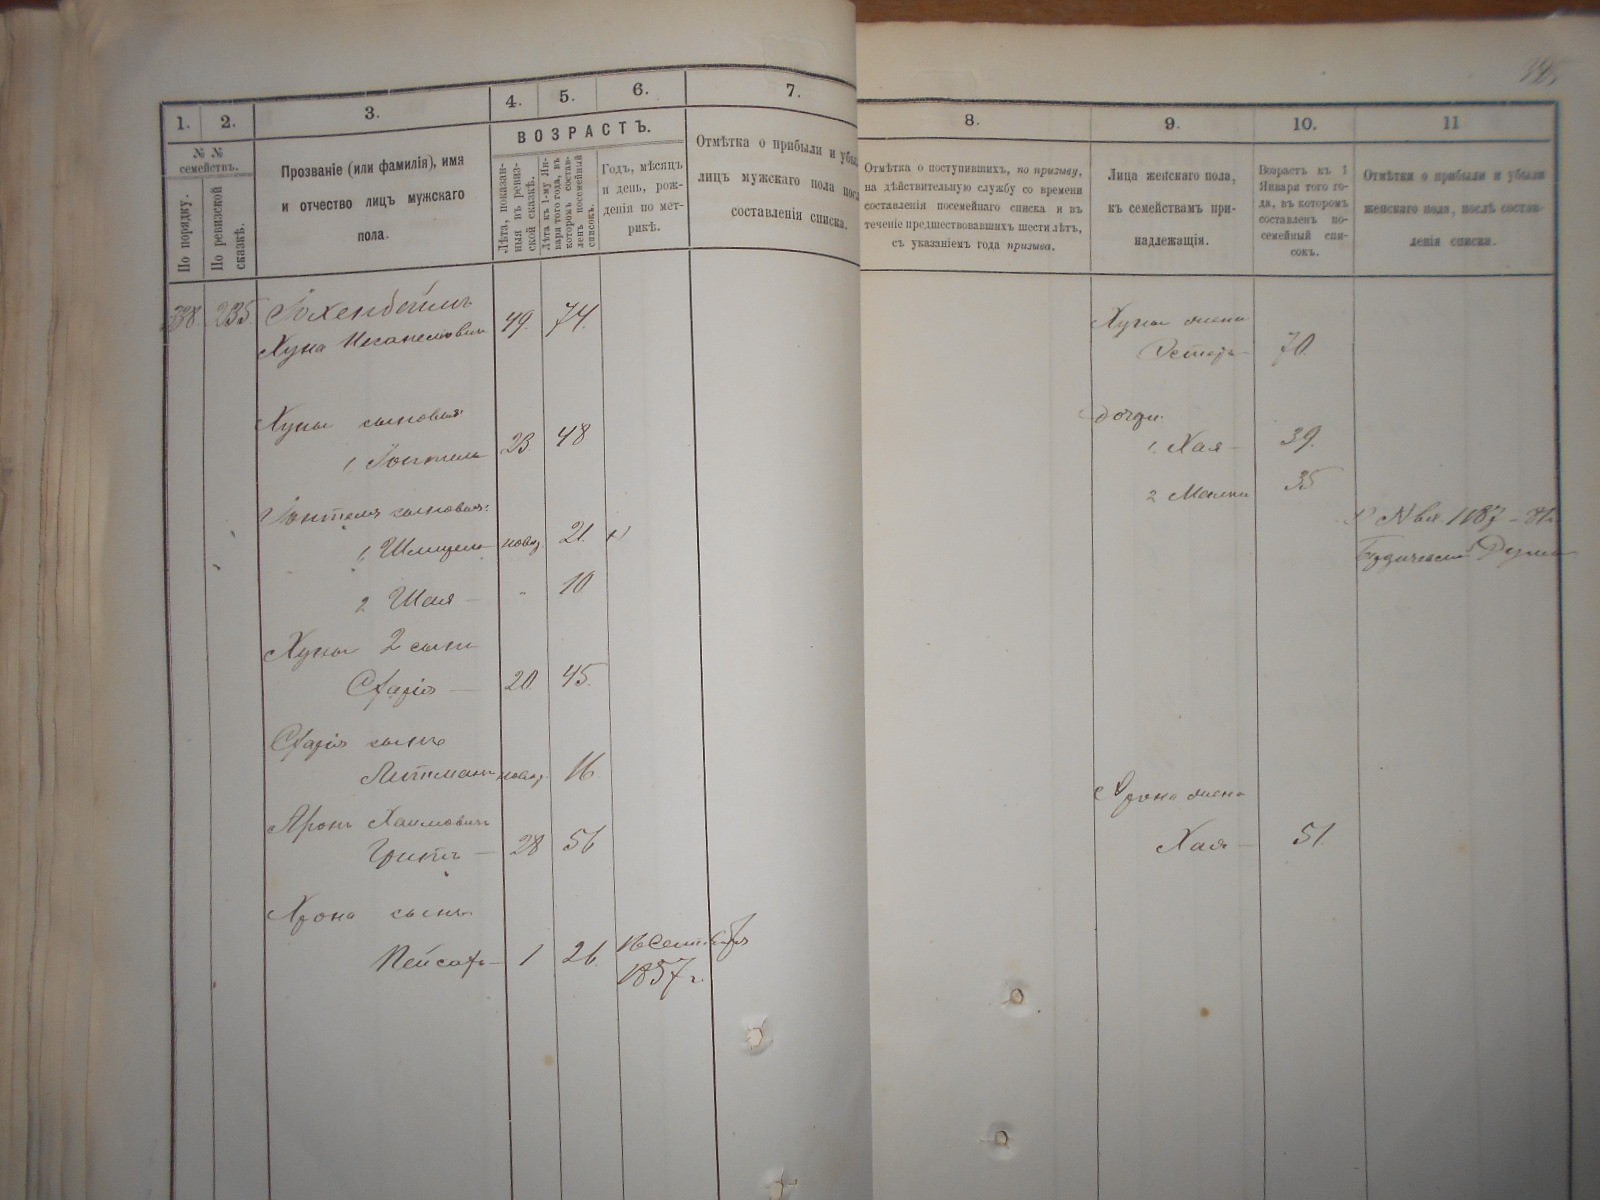 1.
2.
3.
4.
5.
6.
7.
8.
9.
10.
11
№ №
семействъ.
По порядку.
По ревизской
сказкѣ.
Прозваніе (или фамилія), имя
и отчество лицъ мужскаго
пола.
ВОЗРАСТЪ.
Лѣта, показан-
ныя въ ревиз-
ской сказкѣ.
Лѣта къ 1-му Ян-
варя того года, въ
которомъ состав-
ленъ посемейный
списокъ.
Годъ, мѣсяцъ
и день, рож-
денія по мет-
рикѣ.
Отмѣтка о прибыли и убы
лицъ мужскаго пола посл
составленія списка.
Отмѣтка о поступившихъ, по призыву,
на дѣйствительную службу со времени
составленія посемейнаго списка и въ
теченіе предшествовавшихъ шести лѣтъ,
съ указаніемъ года призыва.
Лица женскаго пола,
къ семействамъ при-
надлежащія.
Возрастъ къ 1
Января того го-
да, въ которомъ
составленъ по-
семейный спи-
сокъ.
Отмѣтки о прибыли и убыли
женскаго пола, послѣ состав-
ленія списка.
238 235
Хуна 49. 74.
Хуны жена
Эстеръ 70
Хуны сыновья:
1. 23 48
дочери
1. Хая 39.
2 Малка 35
сыновья:
1. 21.
2 Шая 10
Хуны 2 сынъ
20. 45.
сынъ
Литманъ 16
Аронъ Хаимовичъ
28 56
Арона жена
Хая 51.
Арона сынъ
Пейсахъ 1 26. 16 Сентября
1857 г.